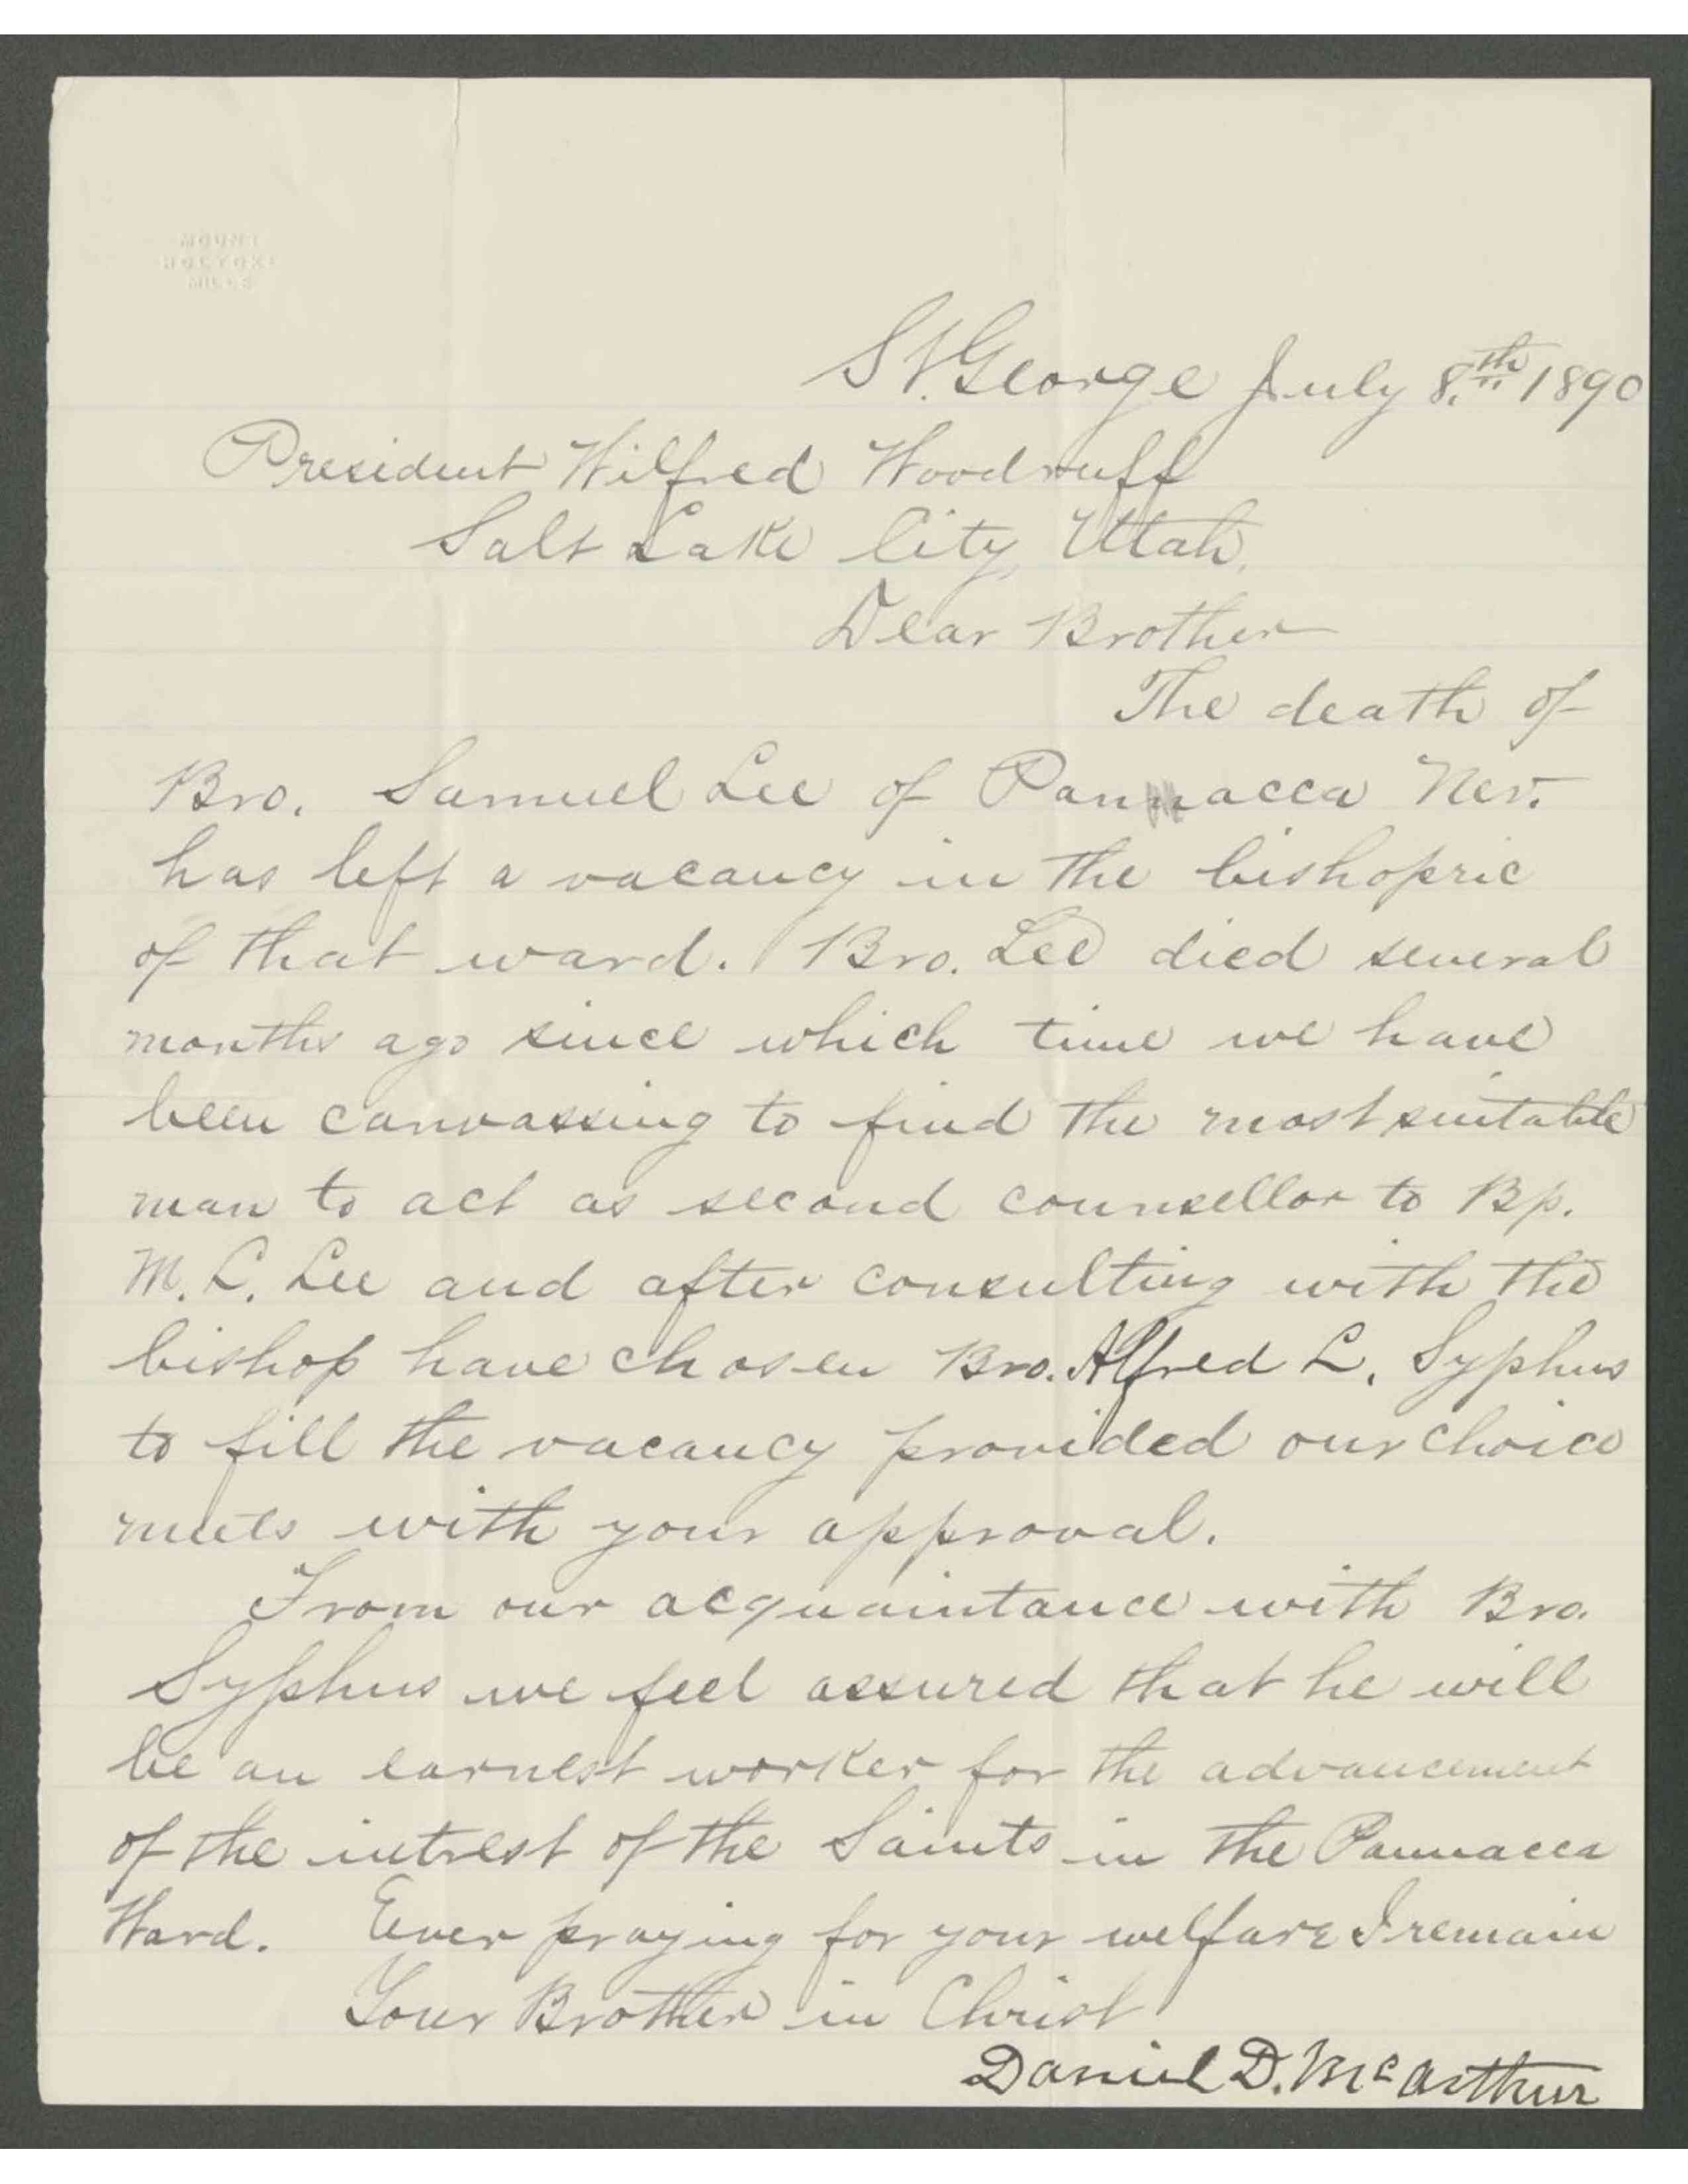 MOUNT
HOLYOKE
MILLS
St. George July 8.th 1890
President Wilfred Woodruff
Salt Lake City, Utah.
Dear Brother
The death of
Bro. Samuel Lee of Pannacca Nev.
has left a vacancy in the bishopric
of that ward. Bro. Lee died several
months ago since which time we have
been canvassing to find the most suitable
man to act as second counsellor to Bp.
M. L. Lee and after consulting with the
bishop have chosen Bro. Alfred L. Syphus
to fill the vacancy provided our choice
meets with your approval.
From our acquaintance with Bro.
Syphus we feel assured that he will
be an earnest worker for the advancement
of the intrest of the Saints in the Pannacca
Ward. Ever praying for your welfare I remain
Your Brother in Christ
Daniel D. McArthur